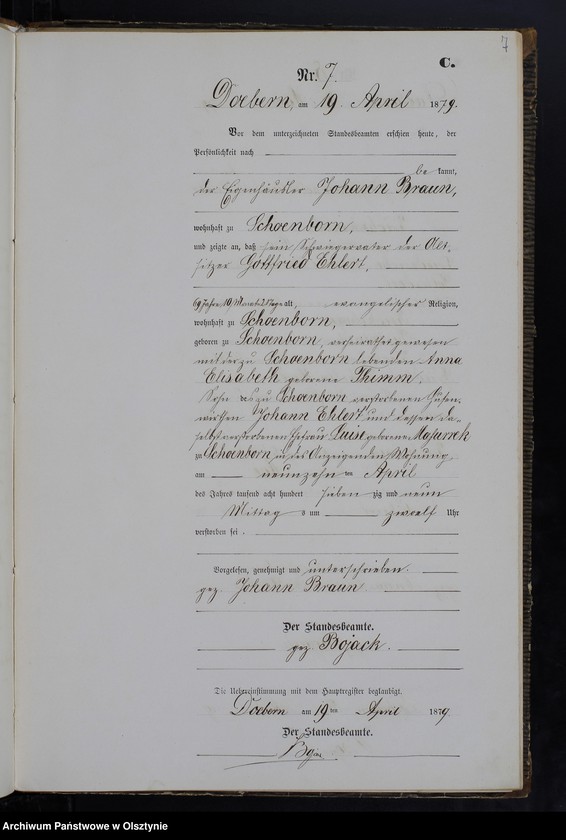 7
C.
Nr. 7.
Doebern, am 19. April 1879.
Vor dem unterzeichneten Standesbeamten erschien heute, der
Persönlichkeit nach
be kannt,
der Eigenkäthler Johann Braun,
wohnhaft zu Schoenborn,
und zeigte an, daß sein Schwiegervater der Alt-
sitzer Gottfried Ehlert,
69 Jahre 10 Monate alt, evangelischer Religion,
wohnhaft zu Schoenborn,
geboren zu Schoenborn, verheirathet gewesen
mit der zu Schoenborn lebenden Anna
Elisabeth geborene Thimm.
Sohn des zu Schoenborn verstorbenen Hufen-
wirthen Johann Ehlert und dessen da-
selbst verstorbenen Ehefrau Luise geborene Masurrek
zu Schoenborn in des Anzeigenden Wohnung,
am neunzehnten April
des Jahres tausend acht hundert sieben zig und neun
Mittags um zwoelf Uhr
verstorben sei.
Vorgelesen, genehmigt und unterschrieben.
gez. Johann Braun
Der Standesbeamte.
gez. Bojack.
Die Uebereinstimmung mit dem Hauptregister beglaubigt.
Doebern am 19ten April 1879
Der Standesbeamte.
Archiwum Państwowe w Olsztynie